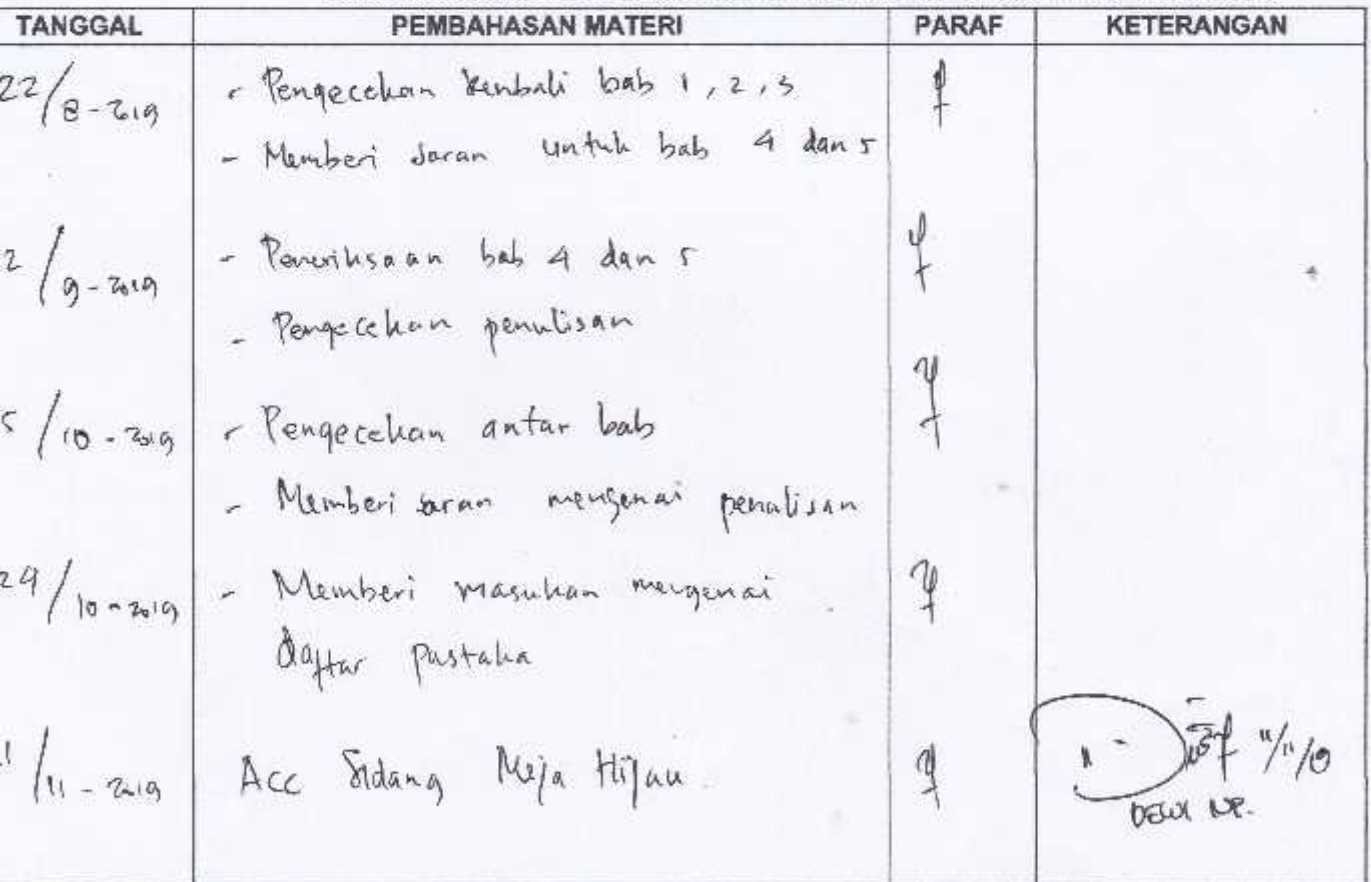 TANGGAL PEMBAHASAN MATERI PARAF KETERANGAN
22/8-2019 - Pengecekan kembali bab 1, 2, 3
- Memberi saran untuk bab 4 dan 5
2/9-2019 - Pemeriksaan bab 4 dan 5
- Pengecekan penulisan
5/10-2019 - Pengecekan antar bab
- Memberi saran mengenai penulisan
29/10-2019 - Memberi masukan mengenai
daftar pustaka
1/11-2019 Acc Sidang Meja Hijau.
11/11/19
DEWI NP.